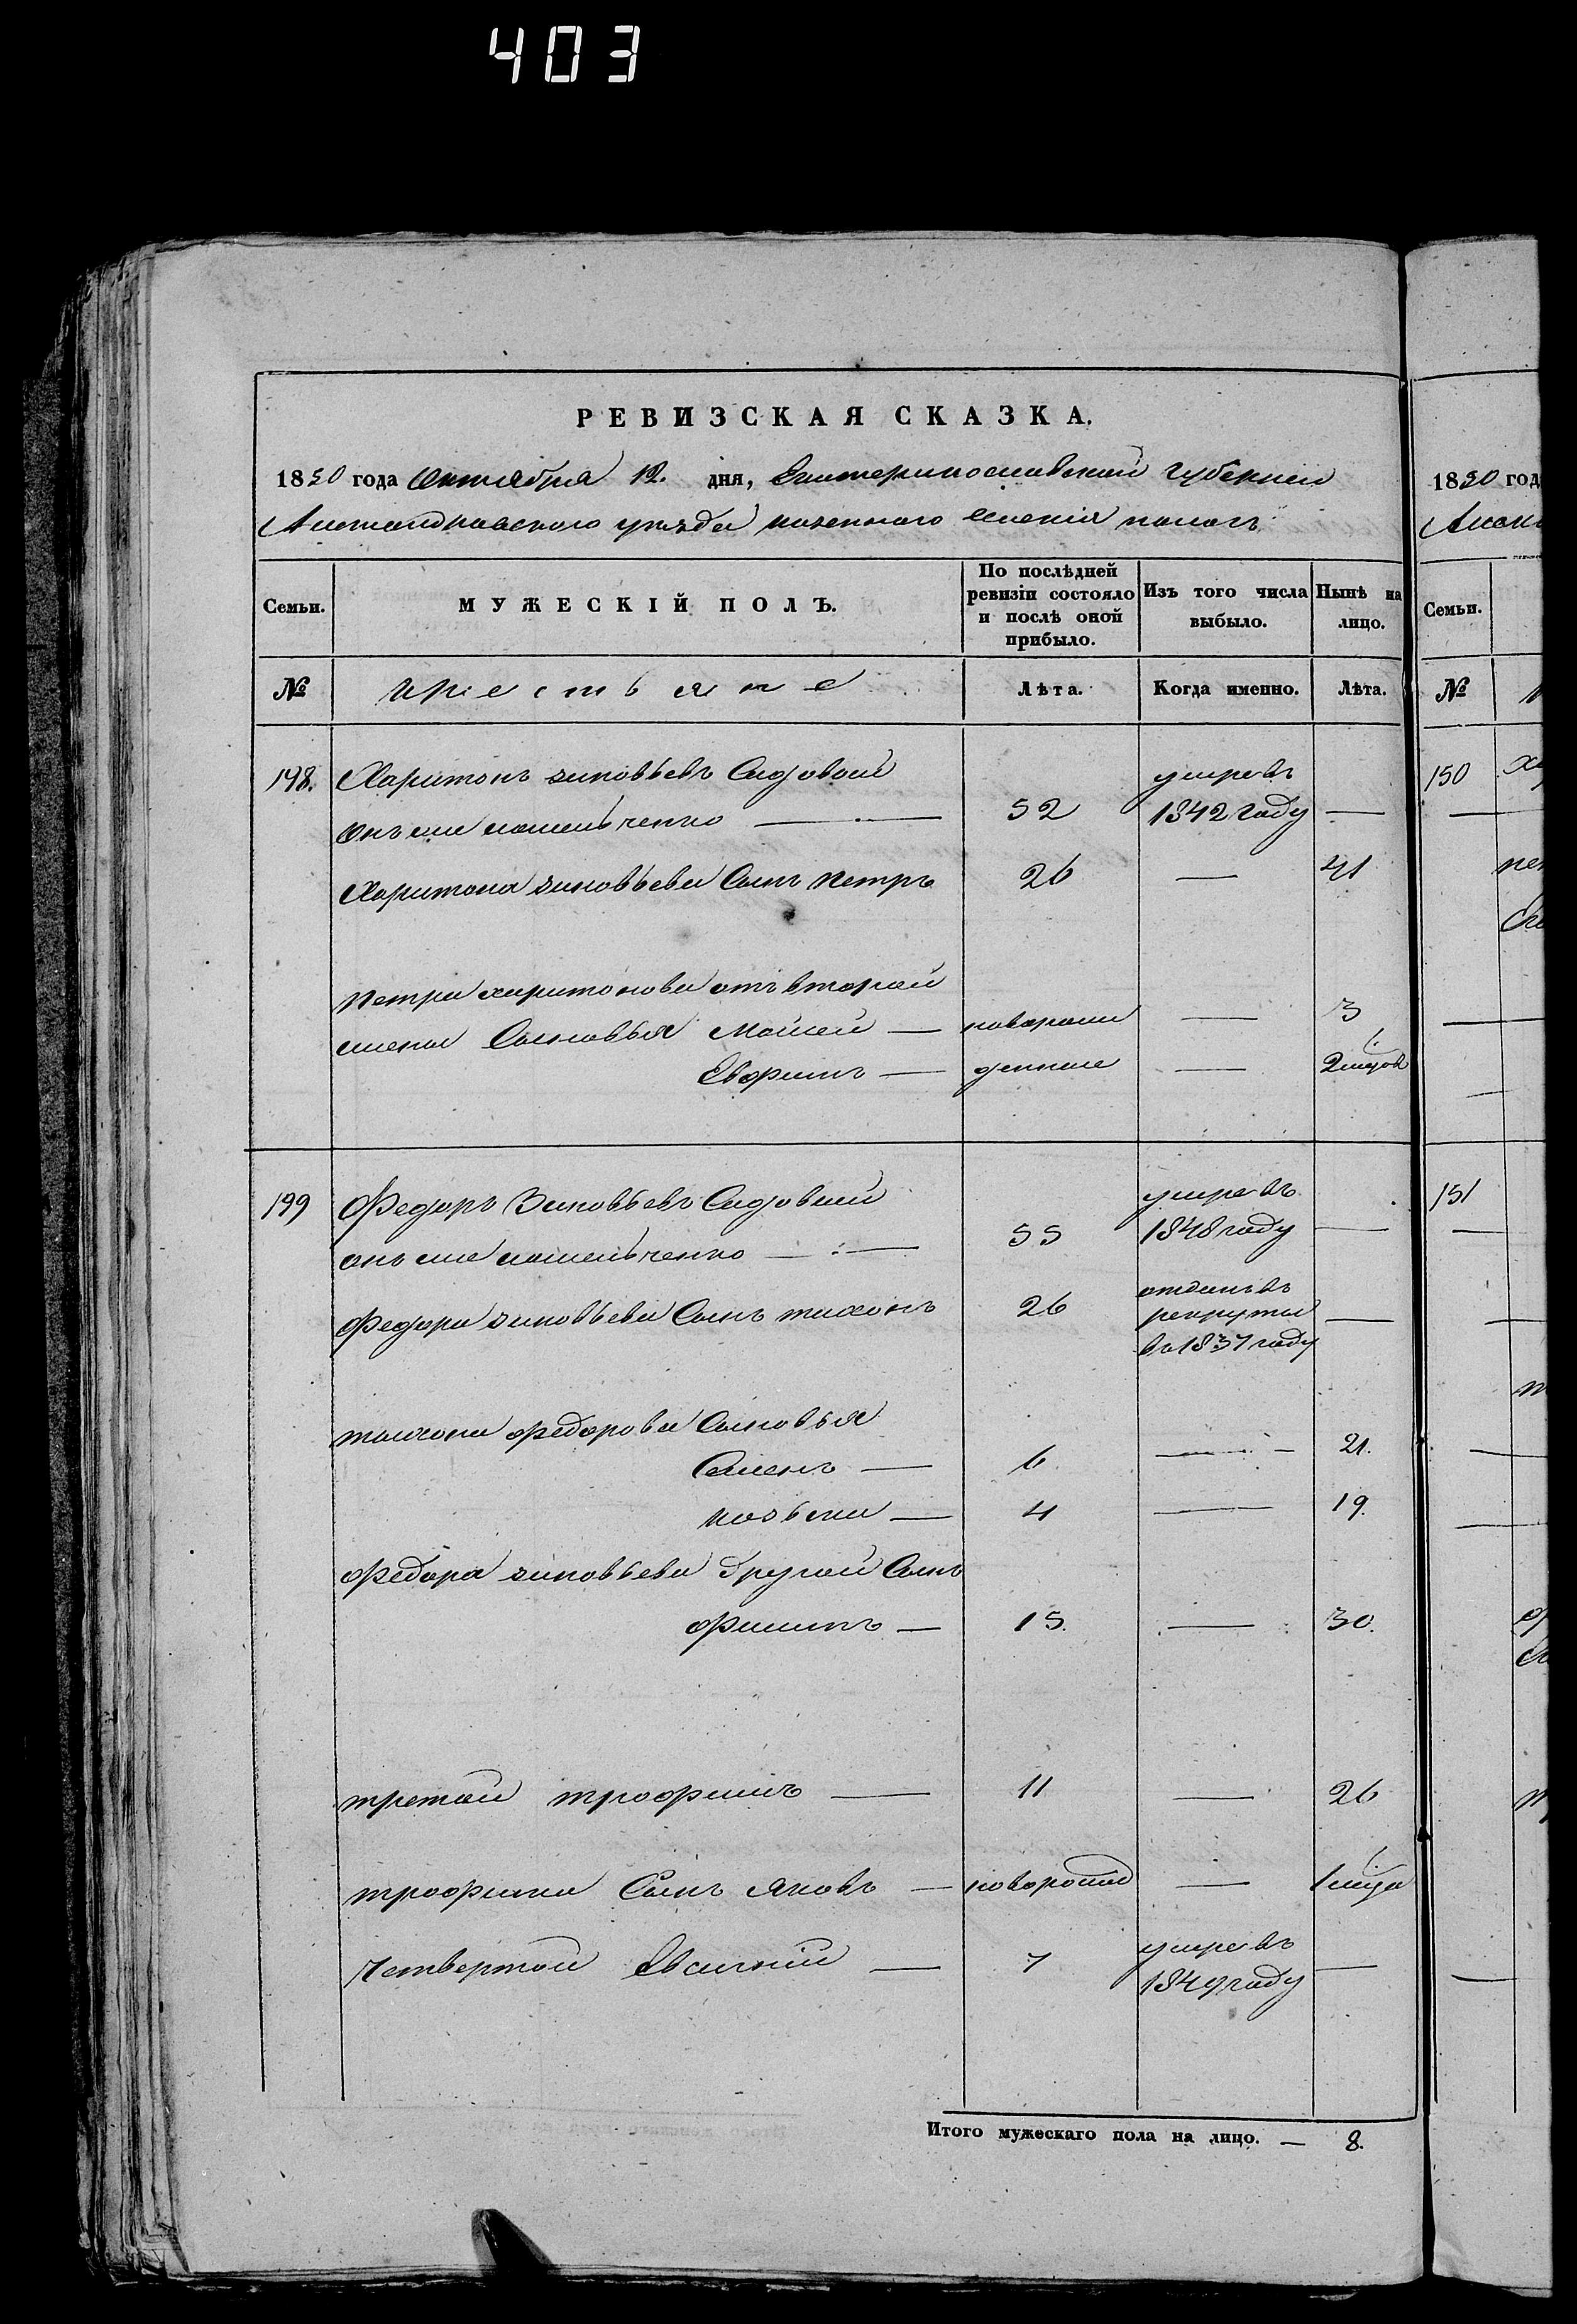 403
РЕВИЗСКАЯ СКАЗКА.
1850 года Октября 12. дня, Екатеринославской Губернии
Александровского уезда казенного селения
Семьи.
МУЖЕСКІЙ ПОЛЪ.
По послѣдней ревизіи состояло и послѣ оной прибыло.
Изъ того числа выбыло.
Нынѣ на лицо.
№
крестьяне
Лѣта.
Когда именно.
Лѣта.
148.
Харитонъ зиновьевъ Садовой
умре въ
онъ же
52
1842 году —
Харитона зиновьева Сынъ петръ
26
—
41
петра харитонова отъ второй
жены Сыновья Мойсей —
новорож
—
3
Ефимъ —
денные
—
2 мцов
149
Федоръ Зиновьевъ Садовый
умре въ
онъ же
55
1848 году —
Федора зиновьева Сынъ тихонъ
26
отданъ въ
рекруты
въ 1837 году —
тихона федорова Сыновья
Семенъ —
6
—
21.
козьма —
4
—
19.
федора зиновьева другой Сынъ
филипъ —
15.
—
30.
третий трофимъ —
11
—
26
трофима Сынъ Яковъ —
новорожд
—
1 мца
Четвертой Евсигний —
7
умре въ
1849 году —
Итого мужескаго пола на лицо. — 8.
1850 год
Семьи.
№
150
151